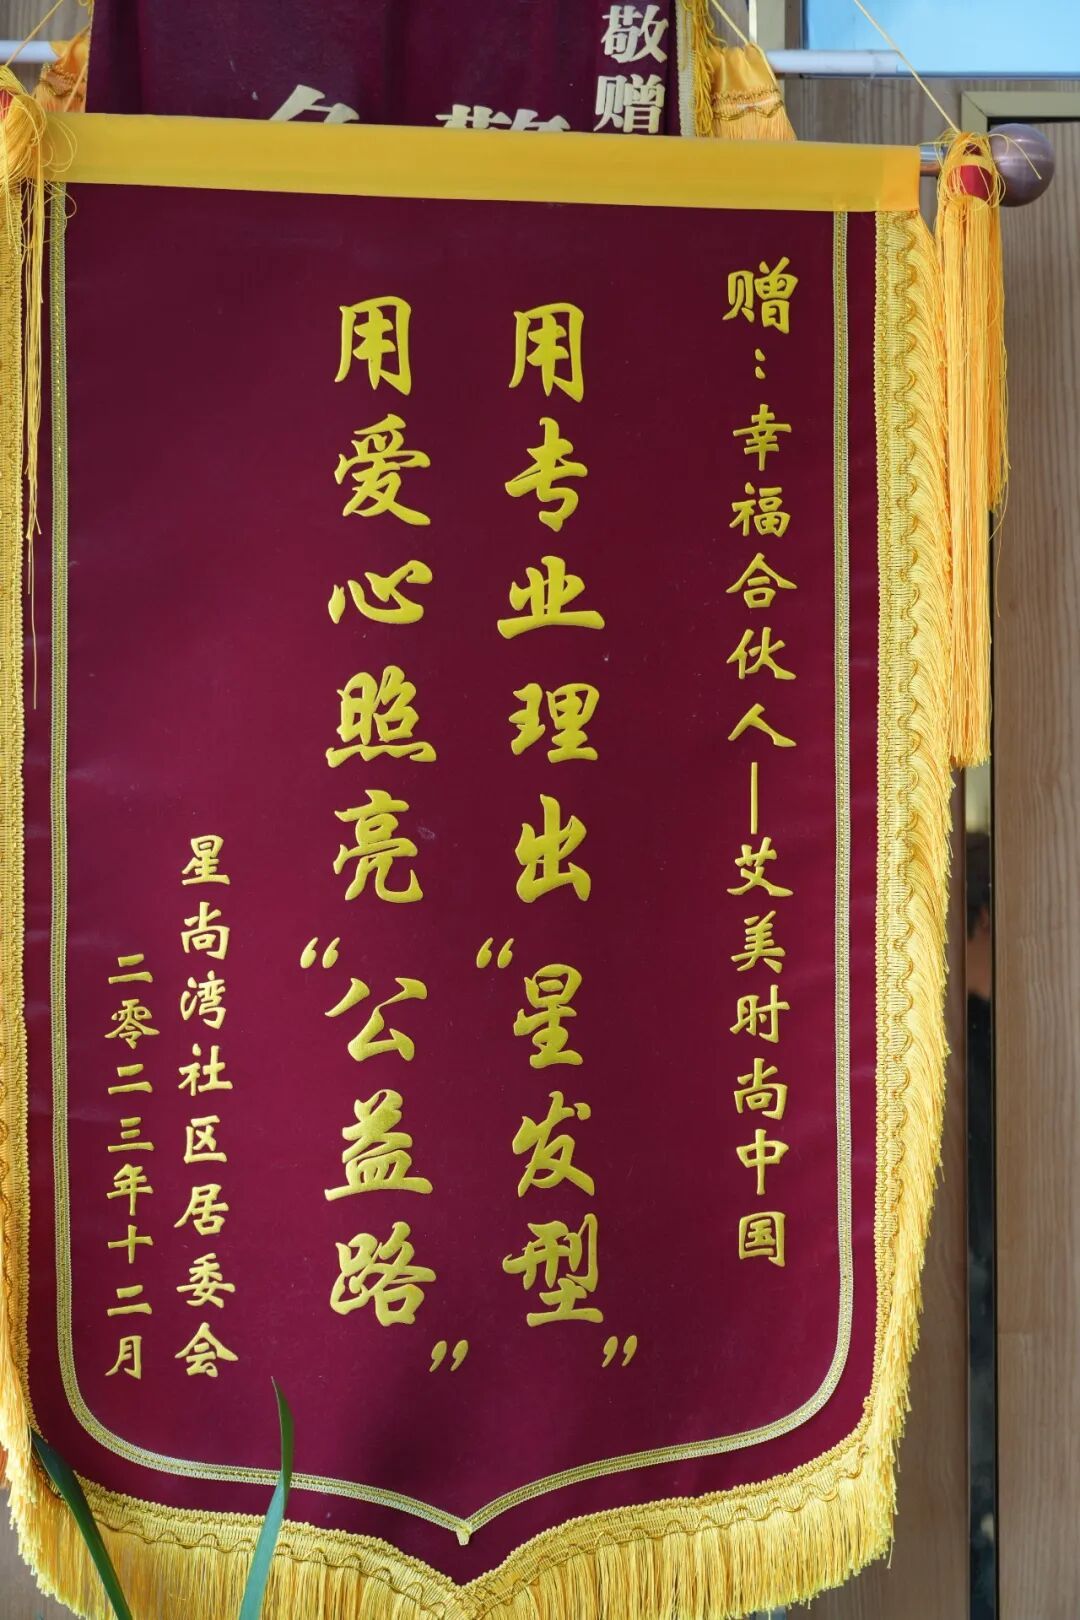 敬赠
赠：幸福合伙人—艾美时尚中国
用专业理出“星发型”
用爱心照亮“公益路”
星尚湾社区居委会
二零二三年十二月